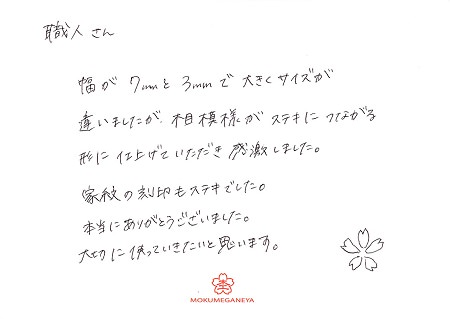 職人さん
幅が7mmと3mmで大きくサイズが
違いましたが、木目模様がステキにつながる
形に仕上げていただき感激しました。
家紋の刻印もステキでした。
本当にありがとうございました。
大切に使っていきたいと思います。
MOKUMEGANEYA